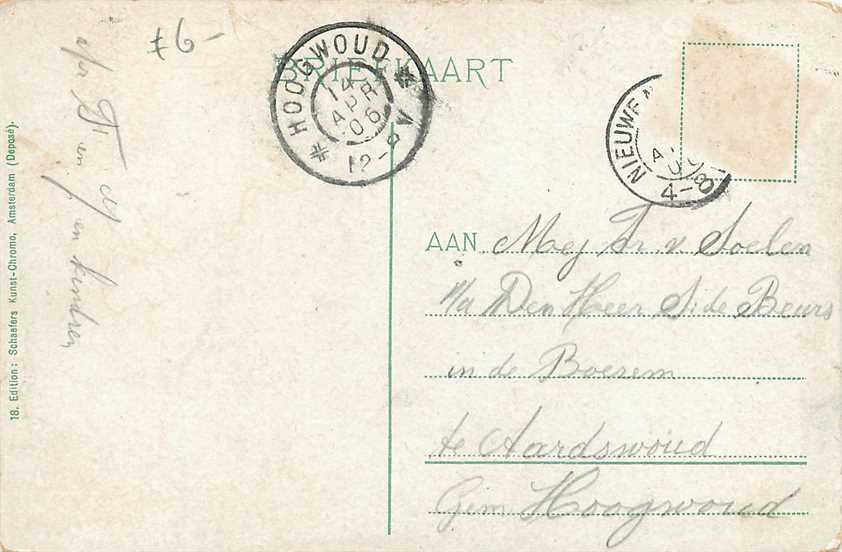 £6-
BRIEFKAART
HOOGWOUD
14
APR
06
12-8 V
NIEUWE
4-8
AAN Mej Tr v Soelen
p/a Den Heer S. de Beurs
in de Boesem
te Aardswoud
Gem Hoogwoud
en en kindren
18. Edition: Schaefers Kunst-Chromo, Amsterdam (Deposé).